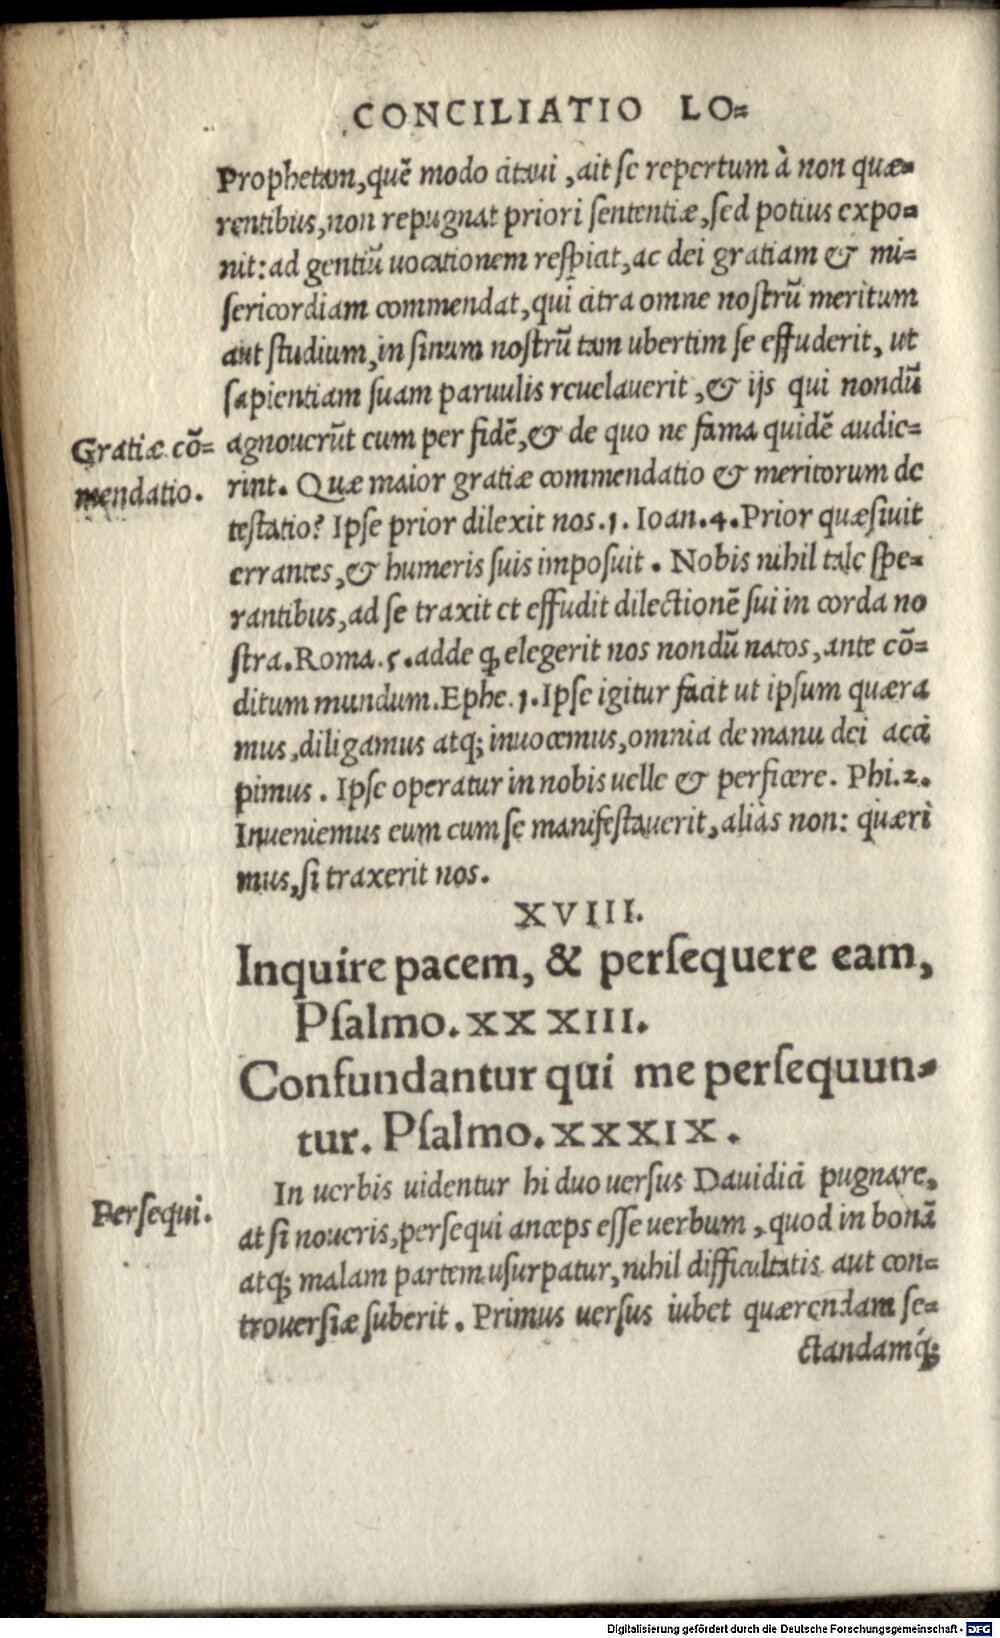 CONCILIATIO LO=
Prophetam, quẽ modo citaui, ait se repertum à non quæ=
rentibus, non repugnat priori sententiæ, sed potius expo=
nit: ad gentiũ uocationem respiciat, ac dei gratiam & mi=
sericordiam commendat, qui citra omne nostrũ meritum
aut studium, in sinum nostrũ tam ubertim se effuderit, ut
sapientiam suam paruulis reuelauerit, & ijs qui nondũ
Gratiæ cõ=
mendatio.
agnouerũt eum per fidẽ, & de quo ne fama quidẽ audie=
rint. Quæ maior gratiæ commendatio & meritorum de
testatio? Ipse prior dilexit nos. 1. Ioan. 4. Prior quæsiuit
errantes, & humeris suis imposuit. Nobis nihil tale spe=
rantibus, ad se traxit et effudit dilectionẽ sui in corda no
stra. Roma. 5. adde ꝙ elegerit nos nondũ natos, ante cõ=
ditum mundum. Ephe. 1. Ipse igitur facit ut ipsum quæra
mus, diligamus atq; inuocemus, omnia de manu dei acci
pimus. Ipse operatur in nobis uelle & perficere. Phi. 2.
Inueniemus eum cum se manifestauerit, aliàs non: quæri
mus, si traxerit nos.
XVIII.
Inquire pacem, & persequere eam,
Psalmo. XXXIII.
Confundantur qui me persequun=
tur. Psalmo. XXXIX.
In uerbis uidentur hi duo uersus Dauidici pugnare,
Persequi.
at si noueris, persequi anceps esse uerbum, quod in bonã
atq; malam partem usurpatur, nihil difficultatis aut con=
trouersiæ suberit. Primus uersus iubet quærendam se=
ctandamq́;
Digitalisierung gefördert durch die Deutsche Forschungsgemeinschaft - DFG